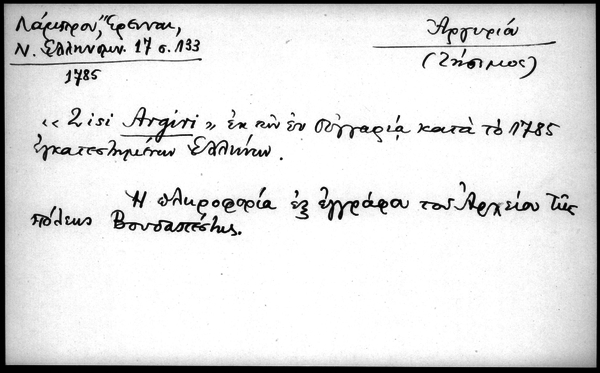 Λάμπρου, Ἔρευναι,
Ν. Ἑλληνομν. 17 σ. 133
1785
Ἀργυρίου
(Ζήσιμος)
« Zisi Argiri » ἐκ τῶν ἐν Οὑγγαρίᾳ κατὰ τὸ 1785
ἐγκατεστημένων Ἑλλήνων.
Ἡ πληροφορία ἐξ ἐγγράφου τοῦ Ἀρχείου τῆς
πόλεως Βουδαπέστης.